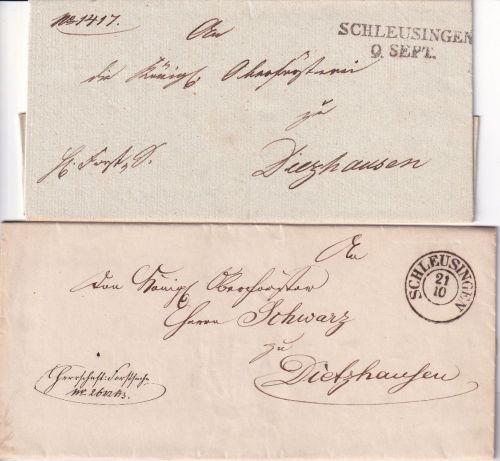 No 1417.
An
SCHLEUSINGEN
9. SEPT.
die Königl. Oberförsterei
zu
H. Forst. S.
Dietzhausen
An
den Königl. Oberförster
Herrn Schwarz
zu
Dietzhausen
SCHLEUSINGEN
21
10
Herrschaftl. Forstsache